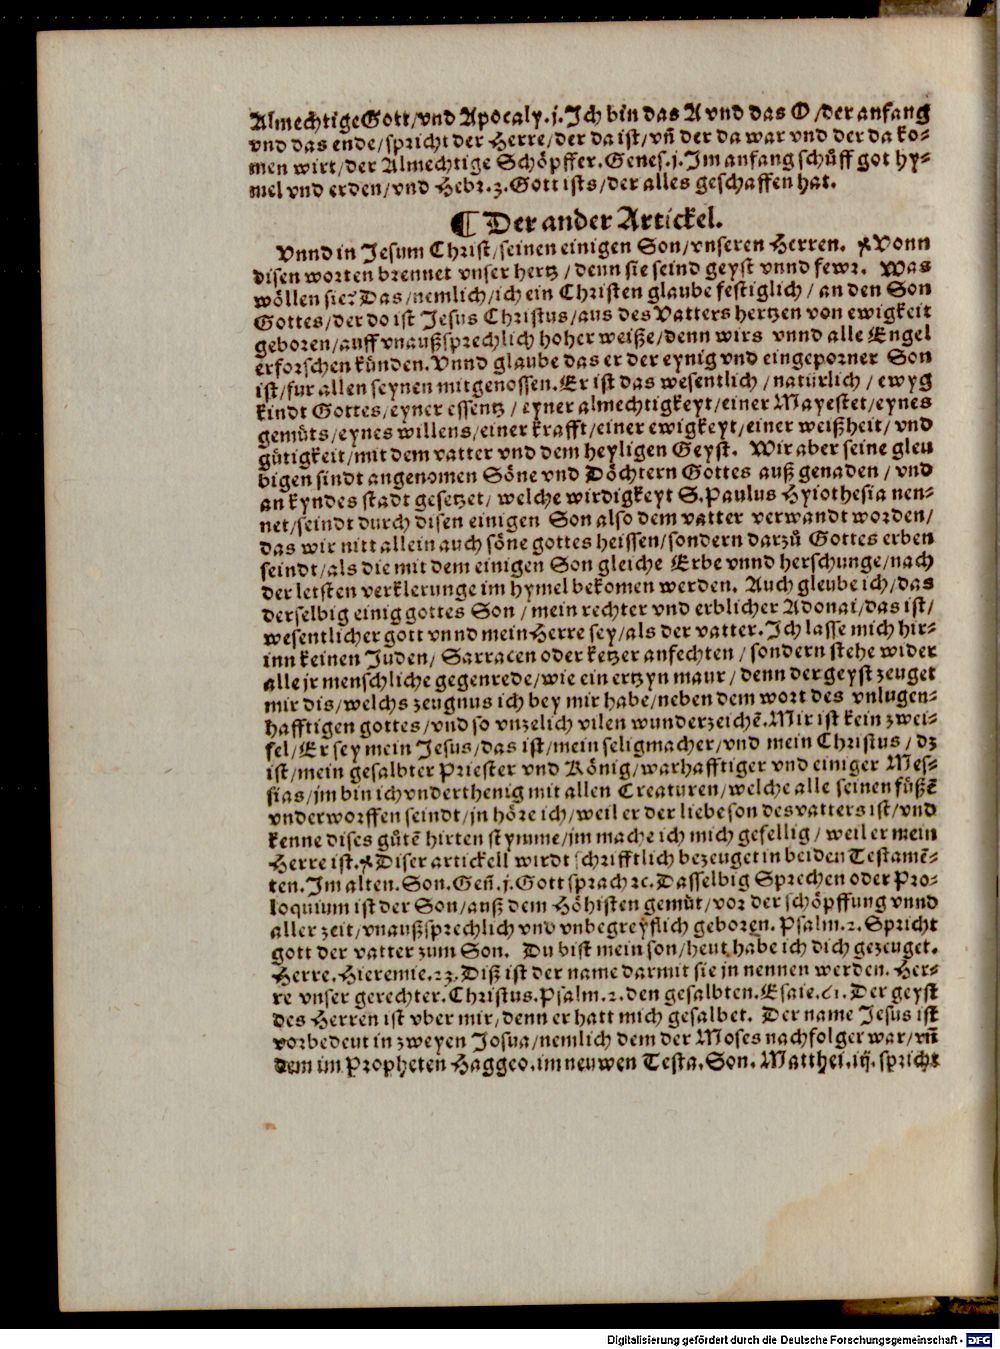 Almechtige Gott/vnd Apocaly.j.Ich bin das A vnd das O/der anfang
vnd das ende/spricht der Herre/der da ist/vn̄ der da war vnd der da ko-
men wirt/der Almechtige Schöpffer.Genes.j.Im anfang schůff got hy-
mel vnd erden/vnd Hebr.3.Gott ists/der alles geschaffen hat.
¶ Der ander Artickel.
Vnnd in Jesum Christ/seinen einigen Son/vnseren Herren. Vonn
disen worten brennet vnser hertz/denn sie seind geyst vnnd fewr. Was
wöllen sie? Das/nemlich/ich ein Christen glaube festiglich/an den Son
Gottes/der do ist Jesus Christus/aus des Vatters hertzen von ewigkeit
geboren/auff vnaußsprechlich hoher weiße/denn wirs vnnd alle Engel
erforschen künden.Vnnd glaube das er der eynig vnd eingeporner Son
ist/fur allen seynen mitgenossen.Er ist das wesentlich/natürlich/ewyg
kindt Gottes/eyner essentz/eyner almechtigkeyt/einer Mayestet/eynes
gemüts/eynes willens/einer krafft/einer ewigkeyt/einer weißheit/vnd
gütigkeit/mit dem vatter vnd dem heyligen Geyst. Wir aber seine gleu
bigen sindt angenomen Söne vnd Döchtern Gottes auß genaden/vnd
an kyndes stadt gesetzet/welche wirdigkeyt S.Paulus Hyiothesia nen-
net/seindt durch disen einigen Son also dem vatter verwandt worden/
das wir nitt allein auch söne gottes heissen/sondern darzů Gottes erben
seindt/als die mit dem einigen Son gleiche Erbe vnnd herschunge/nach
der letsten verklerunge im hymel bekomen werden. Auch gleube ich/das
derselbig einig gottes Son/mein rechter vnd erblicher Adonai/das ist/
wesentlicher gott vnnd mein Herre sey/als der vatter.Ich lasse mich hir-
inn keinen Juden/Sarracen oder ketzer anfechten/sondern stehe wider
alle jr menschliche gegenrede/wie ein ertzyn maur/denn der geyst zeuget
mir dis/welchs zeugnus ich bey mir habe/neben dem wort des vnlugen-
hafftigen gottes/vnd so vnzelich vilen wunderzeichē.Mir ist kein zwei-
fel/Er sey mein Jesus/das ist/mein seligmacher/vnd mein Christus/dz
ist/mein gesalbter Priester vnd König/warhafftiger vnd einiger Mes-
sias/jm bin ich vnderthenig mit allen Creaturen/welche alle seinen füßē
vnderworffen seindt/jn höre ich/weil er der liebe son des vatters ist/vnd
kenne dises gütē hirten stymme/jm mache ich mich gefellig/weil er mein
Herre ist. Diser artickell wirdt schrifftlich bezeuget in beiden Testamē-
ten.Im alten.Son.Gen̄.j.Gott sprach ꝛc.Dasselbig Sprechen oder Pro-
loquium ist der Son/auß dem Höhisten gemüt/vor der schöpffung vnnd
aller zeit/vnaußsprechlich vnd vnbegreyflich geboren.Psalm.2.Spricht
gott der vatter zum Son. Du bist mein son/heut habe ich dich gezeuget.
Herre.Hieremie.23.Diß ist der name darmit sie jn nennen werden.Her-
re vnser gerechter.Christus.Psalm.2.den gesalbten.Esaie.61.Der geyst
des Herren ist vber mir/denn er hatt mich gesalbet. Der name Jesus ist
vorbedeut in zweyen Josua/nemlich dem der Moses nachfolger war/vn̄
dem im Propheten Haggeo.im neuwen Testa.Son.Matthei.iij.spricht
Digitalisierung gefördert durch die Deutsche Forschungsgemeinschaft - DFG